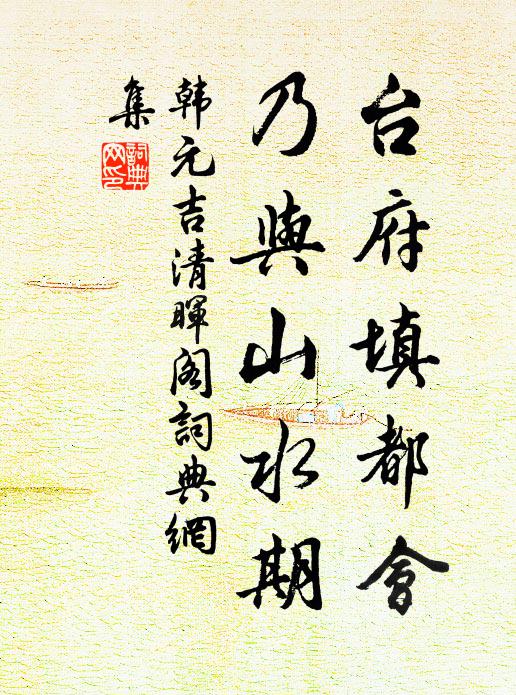 台府填都會
乃與山水期
韩元吉清暉阁詞典網
集
詞典
网印